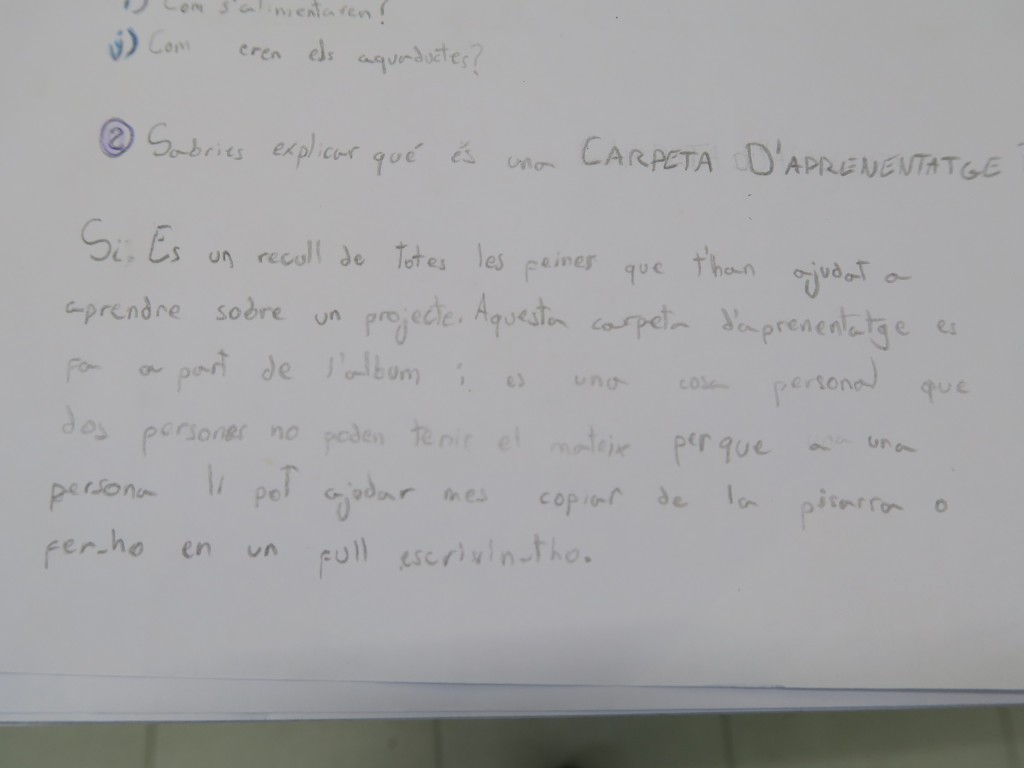 Com s'alimentaven?
j) Com eren els aqueductes?
② Sabries explicar qué és una CARPETA D'APRENENTATGE
Si. Es un recull de totes les feines que t'han ajudat a
aprendre sobre un projecte. Aquesta carpeta d'aprenentatge es
fa a part de l'album i es una cosa personal que
dos persones no poden tenir el mateix perque a una
persona li pot ajudar mes copiar de la pisarra o
fer-ho en un full escrivin-tho.